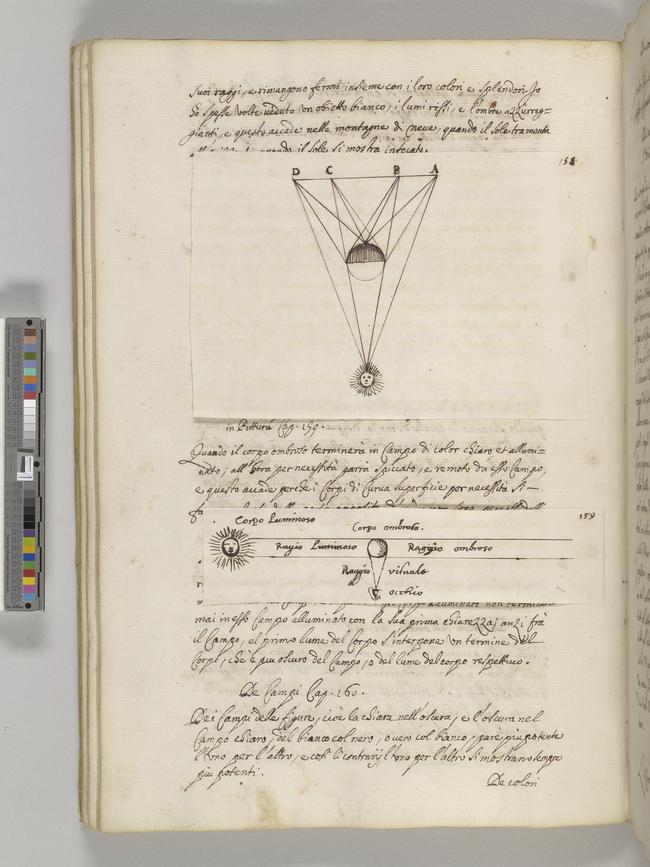 suoi raggi, e rimangono fermi insieme con i loro colori e splendori. Jo
hò spesse volte veduto un obietto bianco, i lumi rossi, e l'ombre azzurreg=
gianti, e questo accade nelle montagne di neve, quando il sole tramonta
quando il sole si mostra infocato.
158
D C B A
in Pittura Cap. 159.
Quando il corpo ombroso terminerà in Campo di color chiaro et allumi=
nato, all'hora per necessità parrà spiccato, e remoto da esso Campo,
e questo accade perche i Corpi di Curva superficie per necessità si
159
Corpo Luminoso
Corpo ombroso.
Ragio Luminoso Raggio ombroso
Raggio visuale
occhio
alluminato non termina
mai in esso Campo alluminato con la sua prima chiarezza; anzi frà
il Campo, e'l primo lume del Corpo s'interpone un termine del
Corpo, che è piu oscuro del Campo, o del lume del corpo respettivo.
De Campi Cap. 160.
De i Campi delle figure, cioè la chiara nell'oscura, e l'oscura nel
Campo chiaro, del bianco col nero, o vero col bianco, pare piu potente
l'uno per l'altro, e così li contrarij l'uno per l'altro si mostrano sempre
piu potenti.
De colori